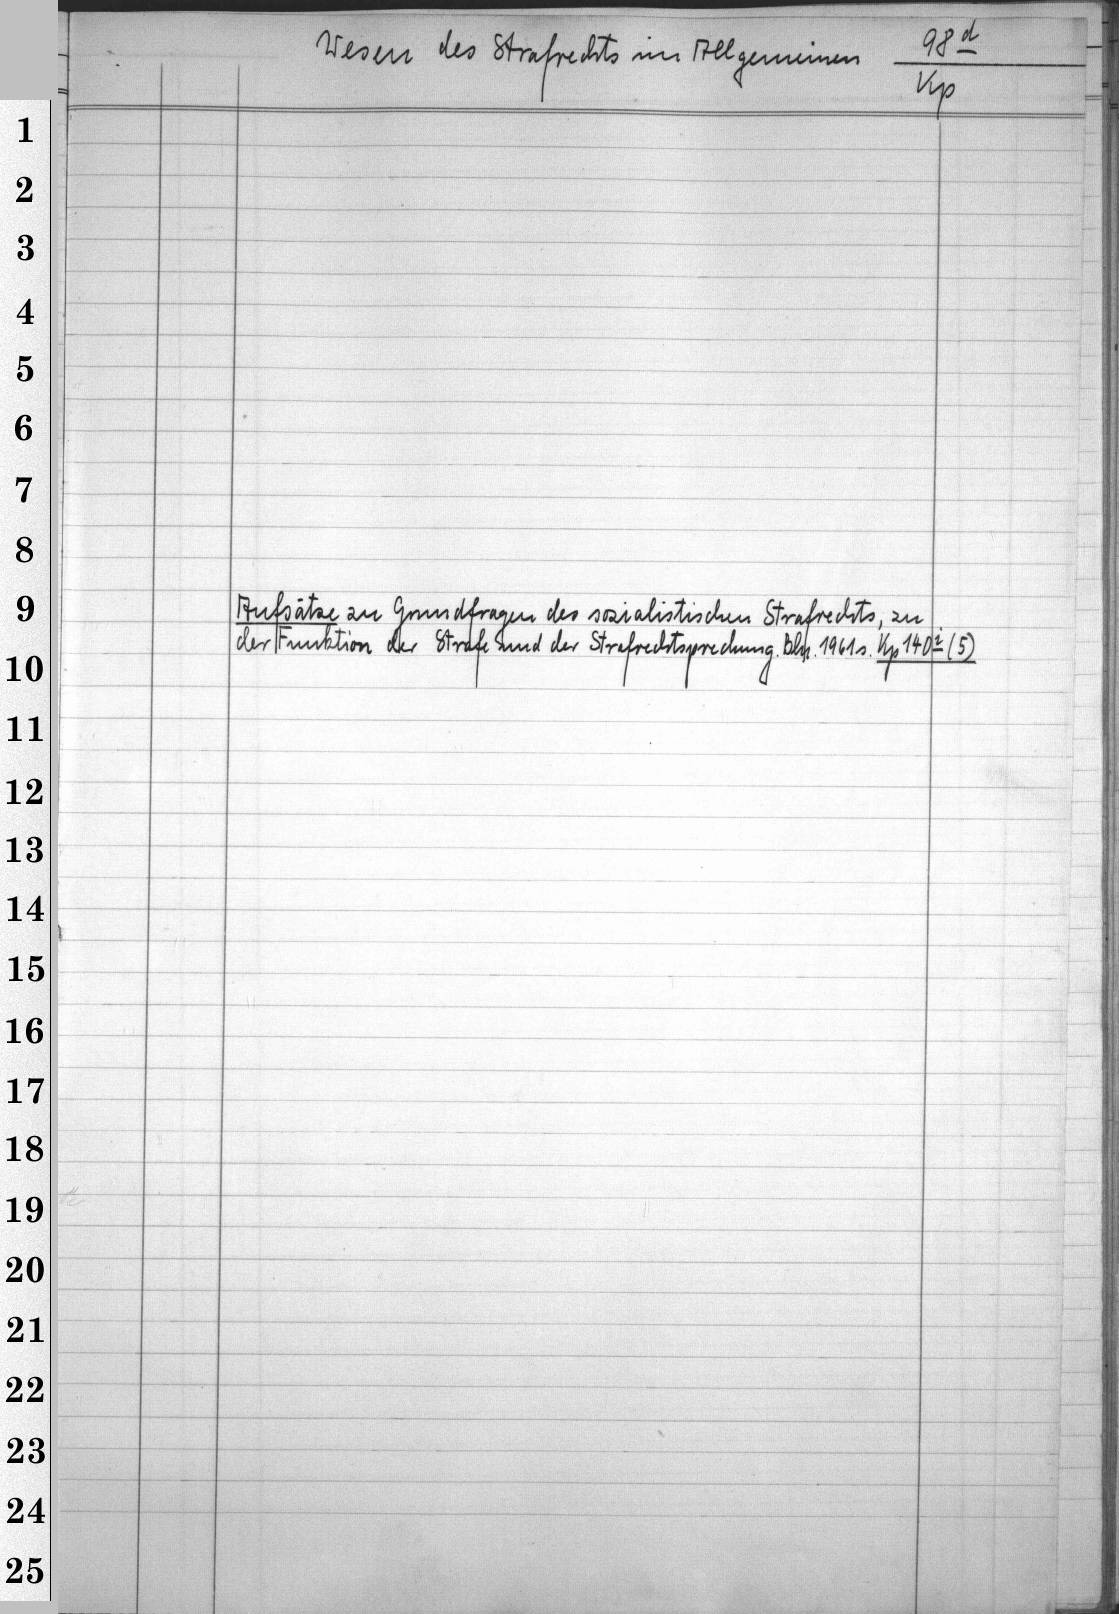 Wesen des Strafrechts im Allgemeinen 98 d
Kp
1
2
3
4
5
6
7
8
9
Aufsätze zu Grundfragen des sozialistischen Strafrechts, zu
der Funktion der Strafe und der Strafrechtsprechung. Bln. 1961s. Kp 140 i (5)
10
11
12
13
14
15
16
17
18
19
20
21
22
23
24
25